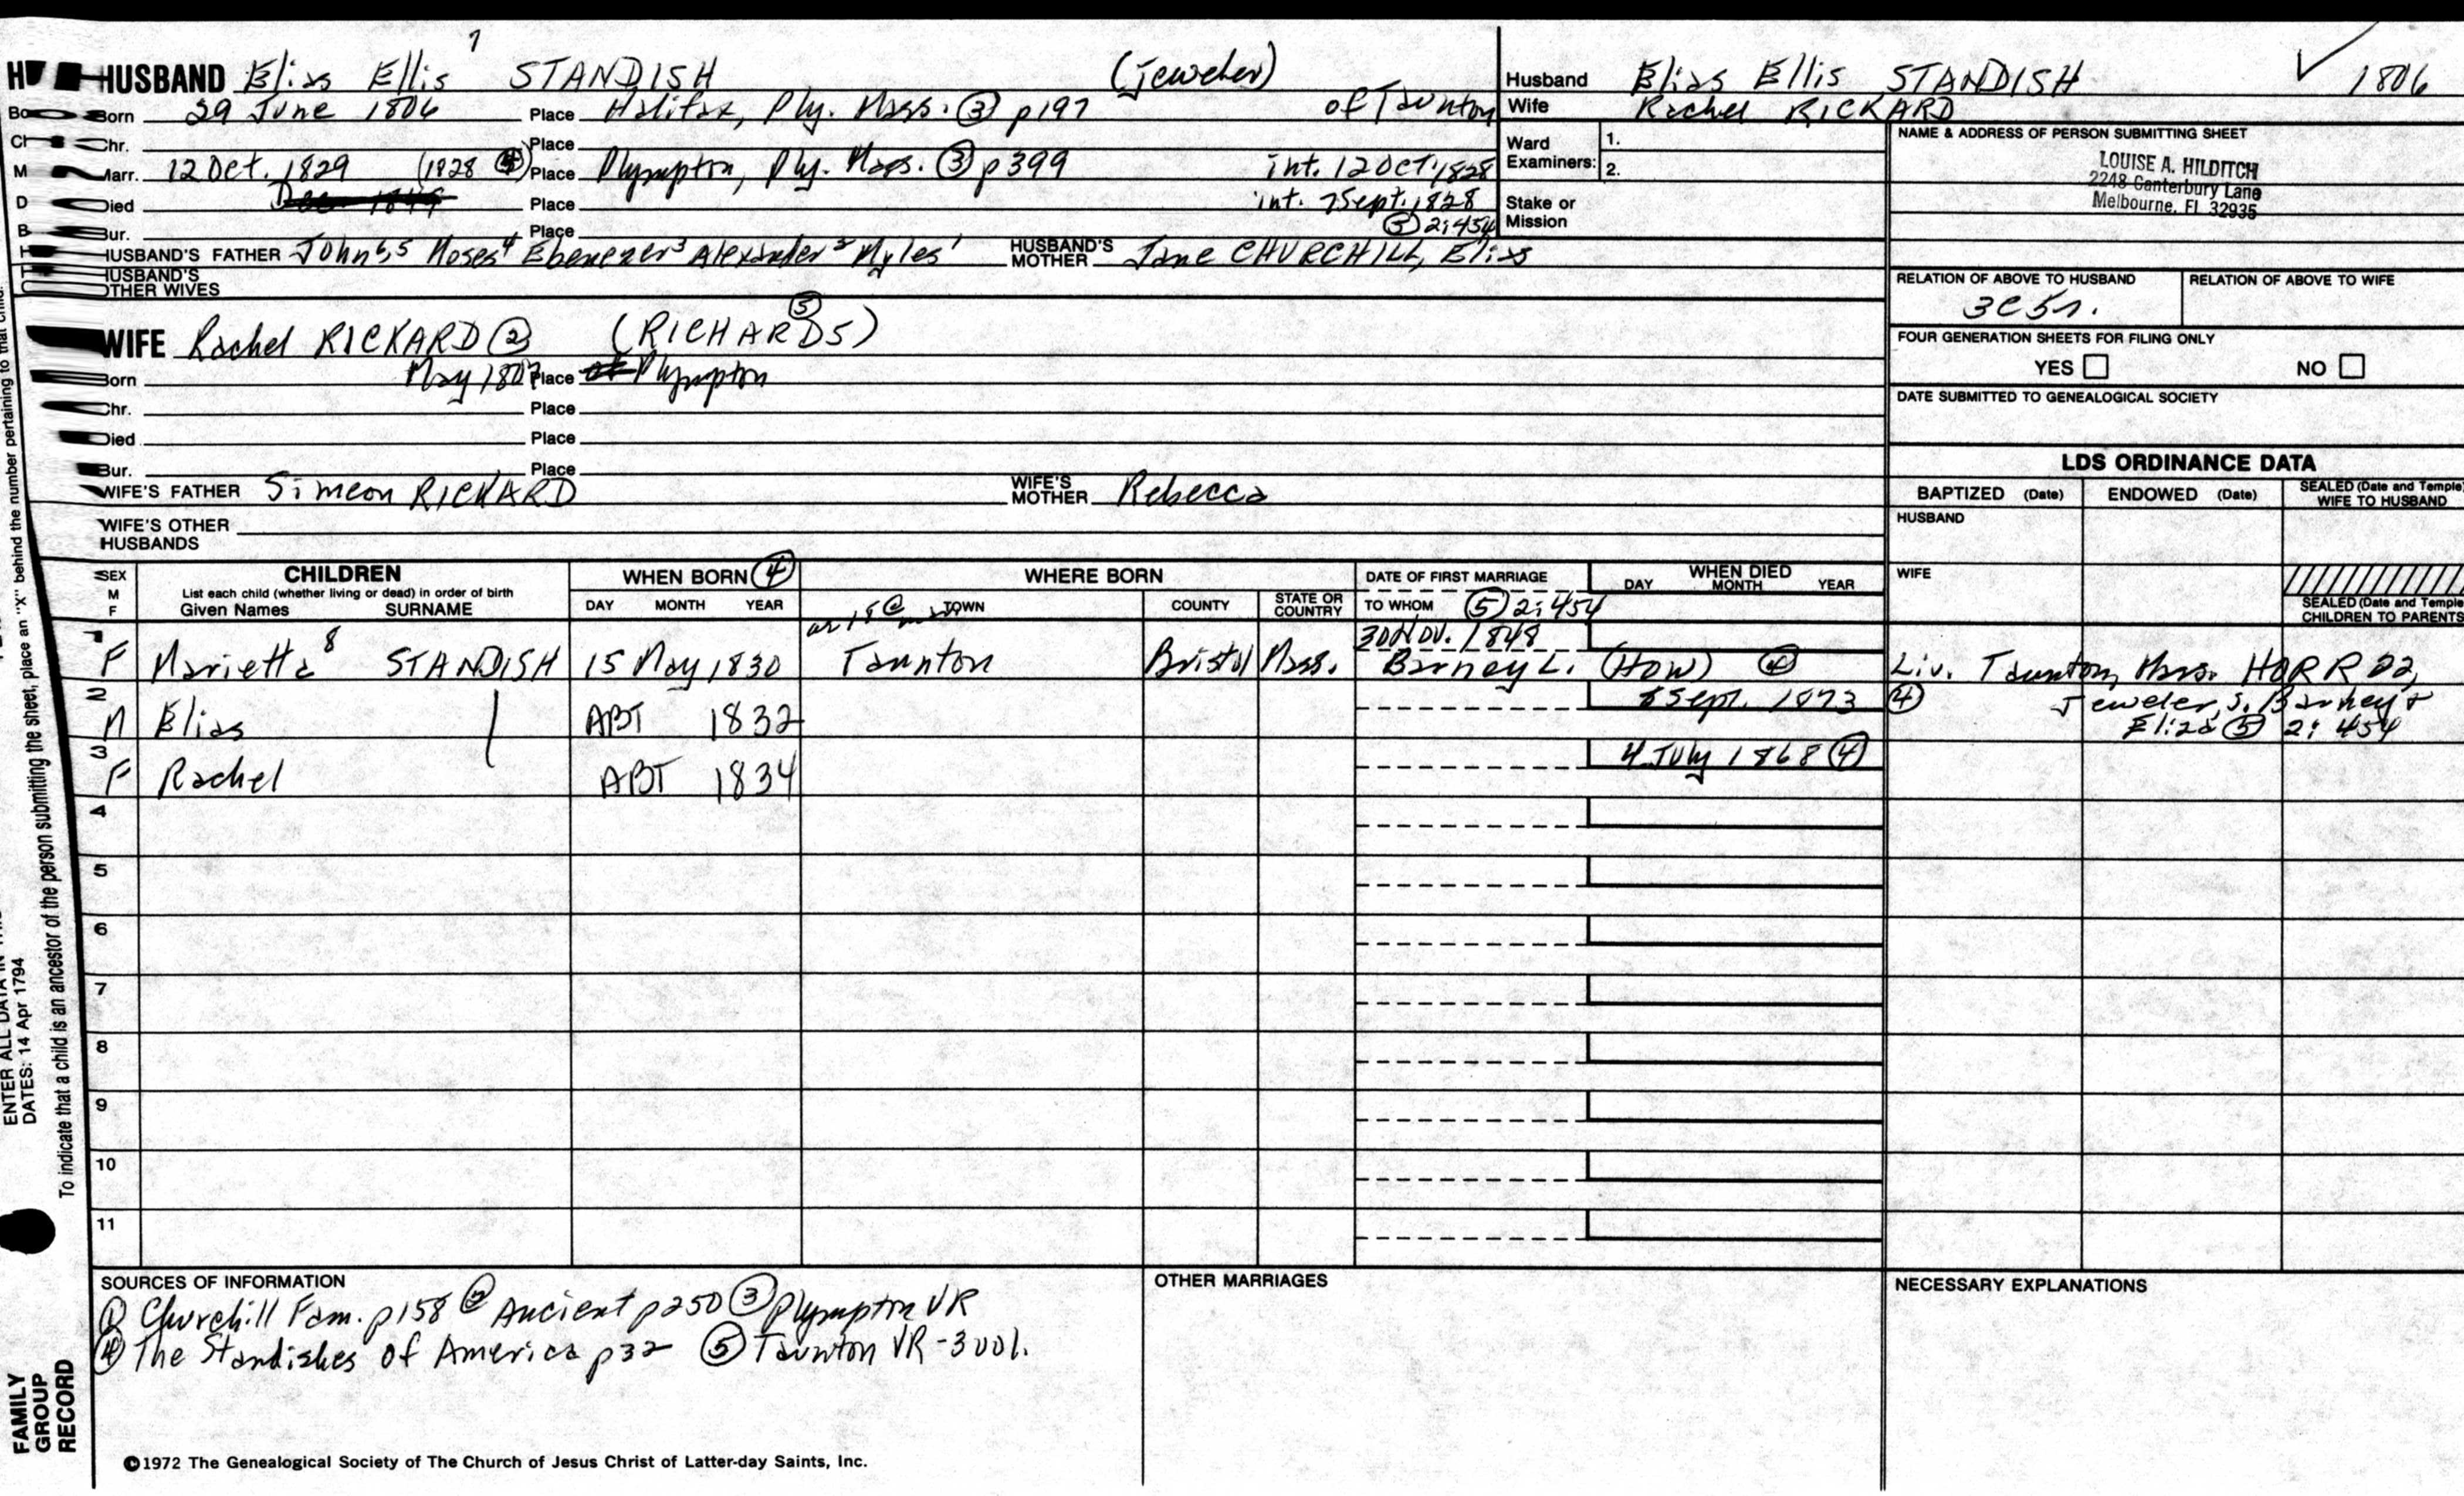 7
HUSBAND Elias Ellis STANDISH (jeweler)
Born 29 June 1806 Place Halifax, Ply. Mass. ③ p197 of Taunton
Chr. Place
Marr. 12 Oct. 1829 (1828 ④) Place Plympton, Ply. Mass. ③ p399 int. 12 OCT. 1828
Died Place int. 7 Sept. 1828
Bur. Place ⑤ 2:454
HUSBAND'S FATHER John 6,5 Moses 4 Ebenezer 3 Alexander 2 Myles 1 HUSBAND'S MOTHER Jane CHURCHILL, Elias
HUSBAND'S OTHER WIVES
WIFE Rachel RICKARD ② (RICHARDS) ⑤
Born May 1807 Place Plympton
Chr. Place
Died Place
Bur. Place
WIFE'S FATHER Simeon RICKARD WIFE'S MOTHER Rebecca
WIFE'S OTHER HUSBANDS
Husband Elias Ellis STANDISH ✓ 1806
Wife Rachel RICKARD
Ward Examiners: 1.
2.
Stake or Mission
NAME & ADDRESS OF PERSON SUBMITTING SHEET
LOUISE A. HILDITCH
2248 Canterbury Lane
Melbourne, FL 32935
RELATION OF ABOVE TO HUSBAND RELATION OF ABOVE TO WIFE
3C5r.
FOUR GENERATION SHEETS FOR FILING ONLY
YES NO
DATE SUBMITTED TO GENEALOGICAL SOCIETY
LDS ORDINANCE DATA
BAPTIZED (Date) ENDOWED (Date) SEALED (Date and Temple) WIFE TO HUSBAND
HUSBAND
WIFE
SEALED (Date and Temple) CHILDREN TO PARENTS
SEX M F CHILDREN WHEN BORN ④ WHERE BORN DATE OF FIRST MARRIAGE WHEN DIED
List each child (whether living or dead) in order of birth
Given Names SURNAME DAY MONTH YEAR TOWN COUNTY STATE OR COUNTRY TO WHOM ⑤ 2:454 DAY MONTH YEAR
1 F Marietta 8 STANDISH 15 May 1830 Taunton Bristol Mass. 30 Nov. 1848 Barney L. (How) ④ Liv. Taunton, Mass.
2 M Elias ABT 1832 8 Sept. 1873 ④ Jeweler, s. Barney & Eliza ⑤ 2:454
3 F Rachel ABT 1834 4 July 1868 ④
4
5
6
7
8
9
10
11
SOURCES OF INFORMATION
① Churchill Fam. p158 ② Ancient p250 ③ Plympton VR
④ The Standishes of America p32 ⑤ Taunton VR-3 vol.
OTHER MARRIAGES
NECESSARY EXPLANATIONS
©1972 The Genealogical Society of The Church of Jesus Christ of Latter-day Saints, Inc.
FAMILY GROUP RECORD
DATES: 14 Apr 1794
To indicate that a child is an ancestor of the person submitting the sheet, place an "X" behind the number pertaining to that child.